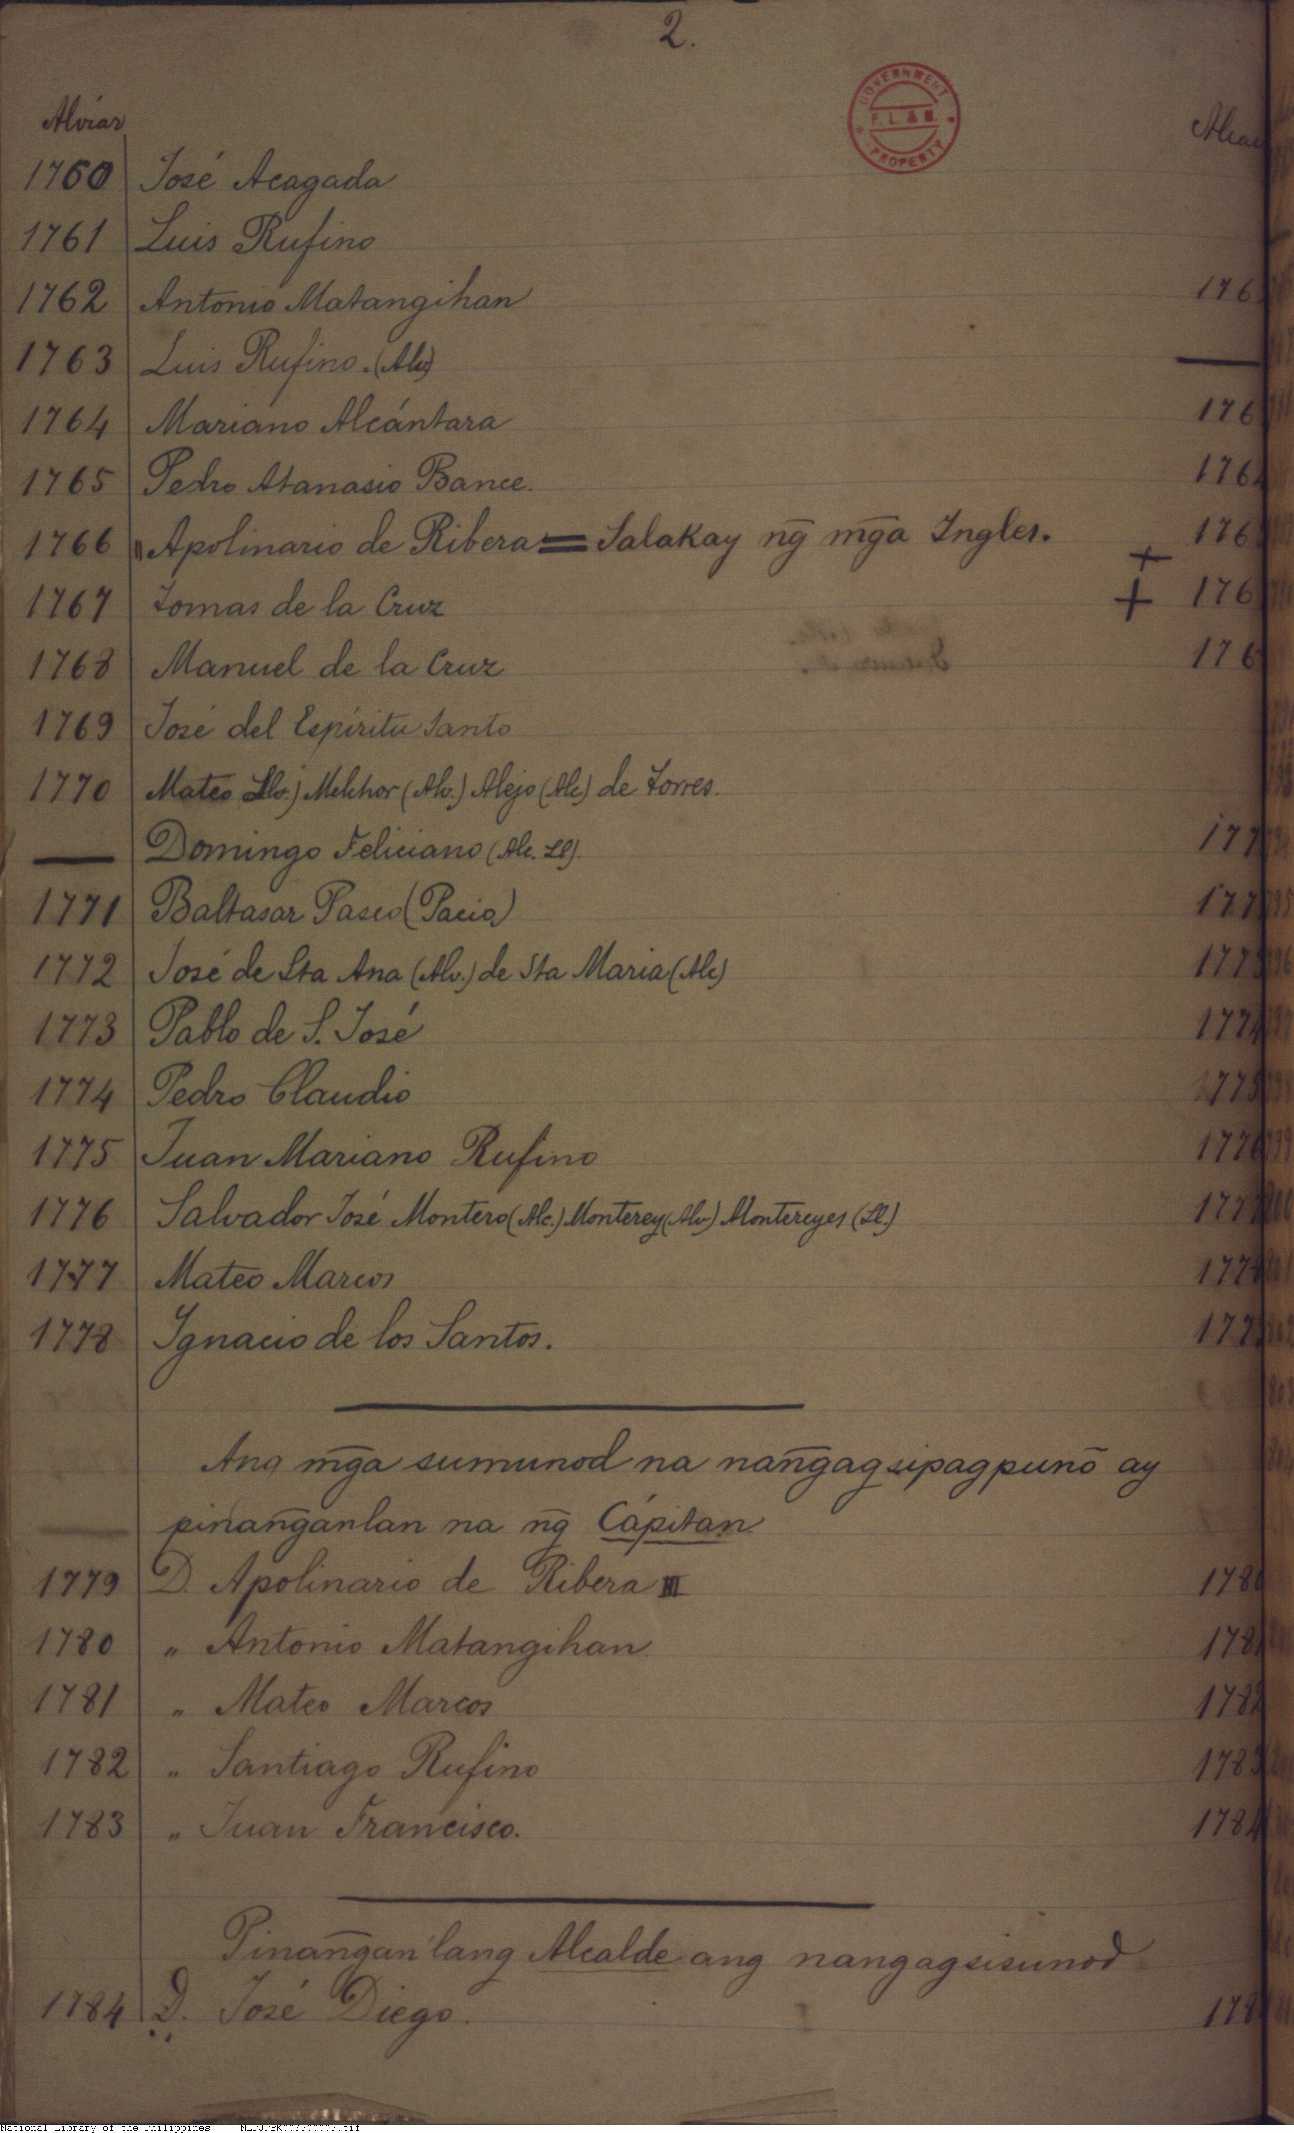 2.
GOVERNMENT
P. L. & M.
PROPERTY
Alviar
1760 José Acagada
1761 Luis Rufino
1762 Antonio Matangihan 176
1763 Luis Rufino. (Alv)
1764 Mariano Alcántara 176
1765 Pedro Atanasio Bance. 176
1766 " Apolinario de Ribera = Salakay ng̃ mg̃a Ingles. 176
+
1767 Tomas de la Cruz + 176
1768 Manuel de la Cruz 176
1769 José del Espíritu Santo
1770 Mateo (Alv.) Melchor (Alv.) Alejo (Alc) de Torres.
— Domingo Feliciano (Alc. Ll). 177
1771 Baltasar Pasco (Pacio) 177
1772 José de Sta Ana (Alv.) de Sta Maria (Alc) 1773
1773 Pablo de S. José 1774
1774 Pedro Claudio 1775
1775 Juan Mariano Rufino 1776
1776 Salvador José Montero (Alc.) Monterey (Alv) Montereyes (Ll.) 1777
1777 Mateo Marcos 1778
1778 Ignacio de los Santos. 177
Ang mg̃a sumunod na nang̃agsipagpunò ay
pinang̃anlan na ng̃ Cápitan
1779 D. Apolinario de Ribera III 1780
1780 " Antonio Matangihan 1781
1781 " Mateo Marcos 1782
1782 " Santiago Rufino 1783
1783 " Juan Francisco. 1784
Pinang̃an'lang Alcalde ang nangagsisunod
1784 D. José Diego. 178
National Library of the Philippines